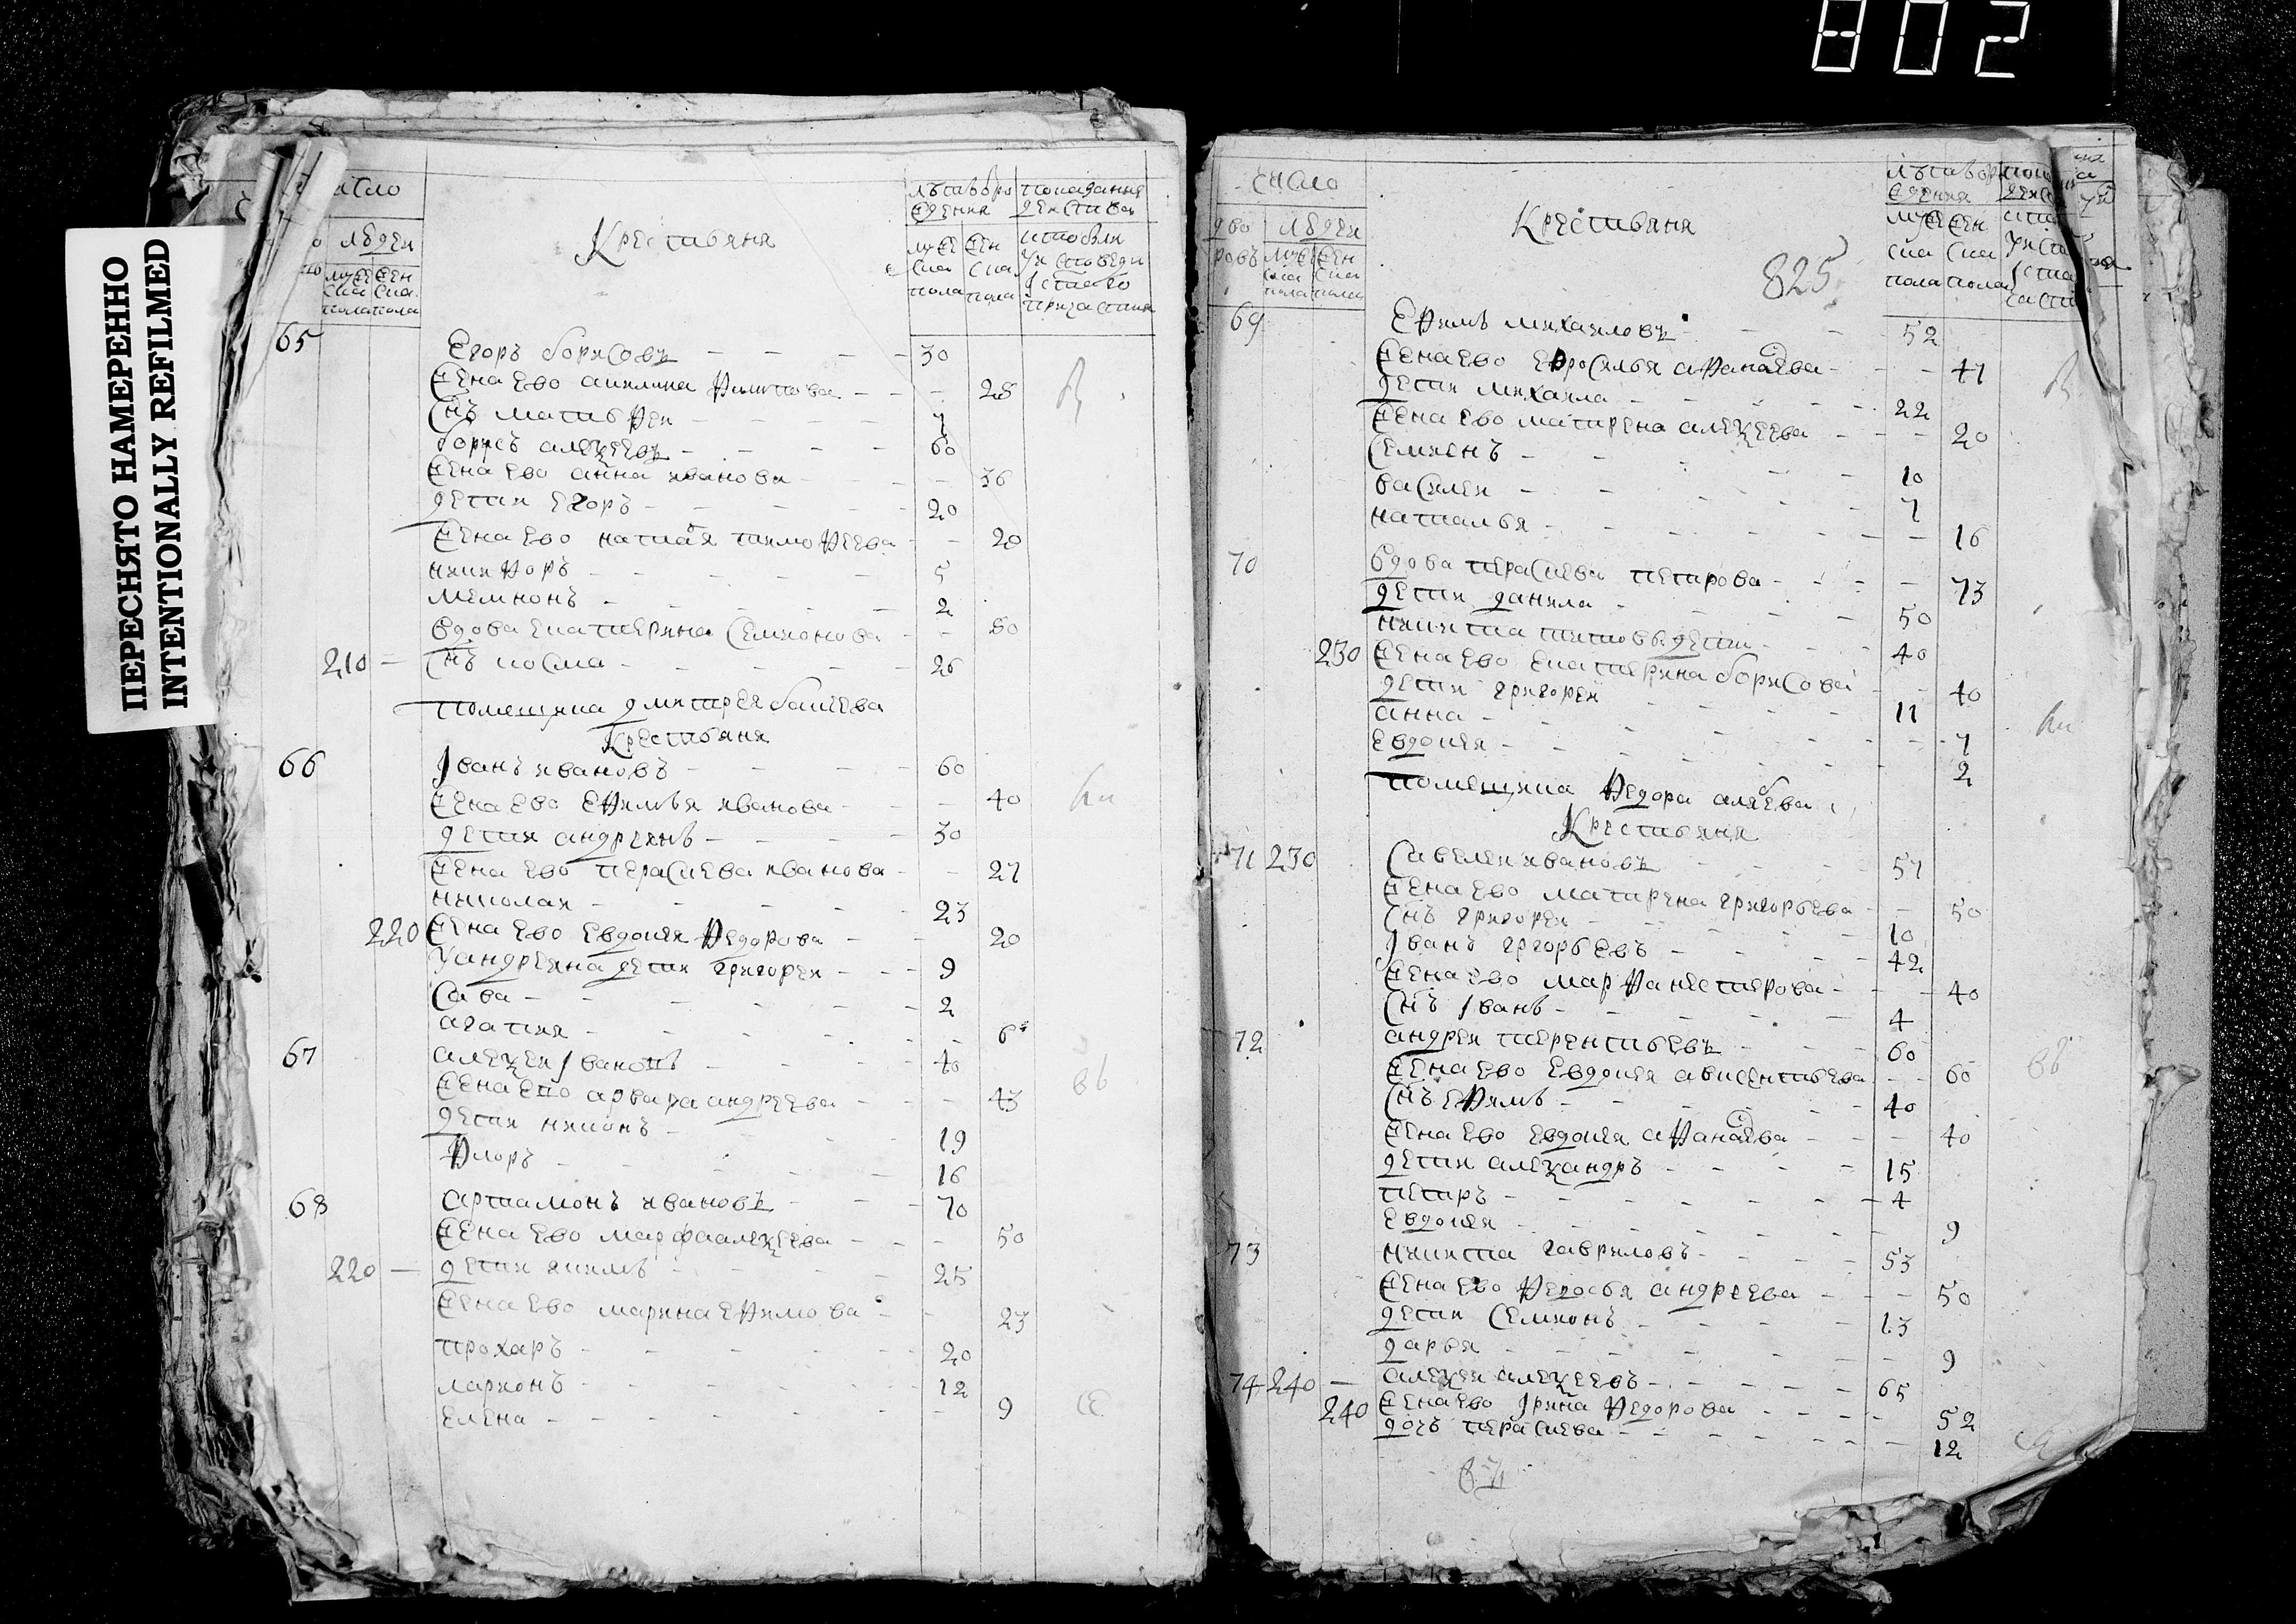 802
ПЕРЕСНЯТО НАМЕРЕННО
INTENTIONALLY REFILMED
число
людеи
мужеска пола
женска пола
Крестьяня
лѣта въ рождения
мужеска пола
женска пола
65 Егоръ борисовъ 30
жена ево акилина филипова 28
снъ матвѣеи 7
борисъ алеѯеевъ 60
жена ево анна иванова 36
дети егоръ 20
жена ево наталя тимофеева 20
никифоръ 5
мемнонъ 2
вдова екатерина семионова 80
210 снъ косма 26
помещика дмитрея башева
Крестьяня
66 Iванъ ивановъ 60
жена ево ефимья иванова 40
дети андреянъ 30
жена ево пераскева иванова 27
николаи 23
220 жена ево евдокея федорова 20
у андреяна дети григореи 9
сава 2
агапия 6
67 алеѯеи Iвановъ 40
жена ево арвара андреева 43
дети никонъ 19
флоръ 16
68 артамонъ ивановъ 70
жена ево марфа алеѯеева 50
220 дети якимъ 25
жена ево марина ефимова 23
прохаръ 20
ларионъ 12
елена 9
число
дворовъ
людеи
мужеска пола
женска пола
Крестьяня
825
69 Ефимъ михаиловъ 52
жена ево ефросинья афанасева 47
дети михаила 22
жена ево матрена алеѯеева 20
семионъ 10
василеи 7
наталья 16
70 вдова пераскева петрова 73
дети данила 50
никита титовъ дети 40
230 жена ево екатерина борисова 40
дети григореи 11
анна 7
евдокея 2
помещика федора алябева
Крестьяня
71 230 савелеи ивановъ 57
жена ево матрена григорьева 50
снъ григореи 10
Iванъ григорьевъ 42
жена ево марфа нестерова 40
снъ Iванъ 4
72 андреи терентьевъ 60
жена ево евдокея авксентьева 60
снъ ефимъ 40
жена ево евдокея афанасева 40
дети алеѯандръ 15
петръ 4
евдокея 9
73 никита гавриловъ 53
жена ево федосья андреева 50
дети семионъ 13
дарья 9
74 240 алеѯеи алеѯеевъ 65
240 жена ево Iрина федорова 52
дочь пераскева 12